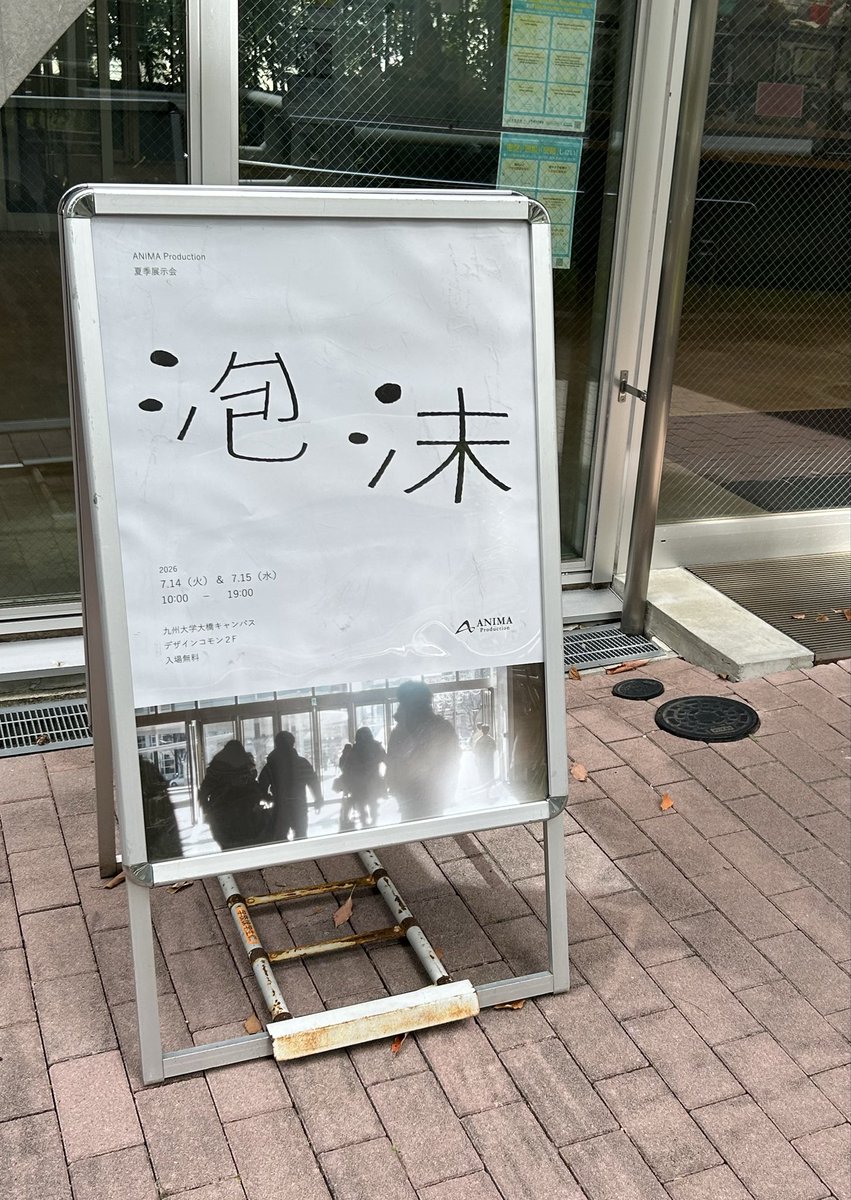 ANIMA Production
夏季展示会
泡沫
2026
7.14（火） & 7.15（水）
10:00 － 19:00
九州大学大橋キャンパス
デザインコモン2F
入場無料
ANIMA
Production